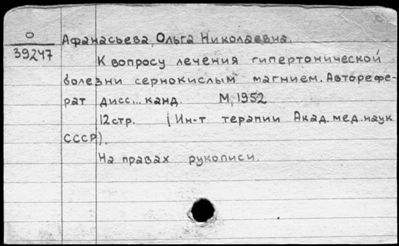 О
39247
Афанасьева, Ольга Николаевна.
К вопросу лечения гипертонической
болезни сернокислым магнием. Авторефе-
рат дисс... канд. М, 1952
12стр. (Ин-т терапии Акад. мед. наук
СССР).
На правах рукописи.